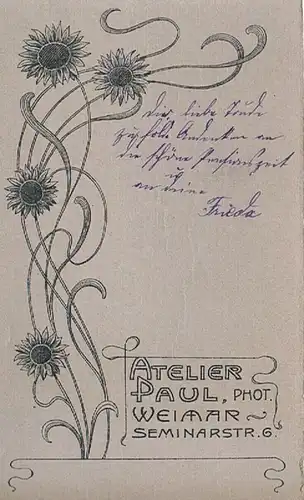 Dir, liebe Trude
zum holde Andenken an
die schöne Pensionszeit
u
an deine
Frieda
ATELIER
PAUL, PHOT.
WEIMAR
SEMINARSTR. 6.